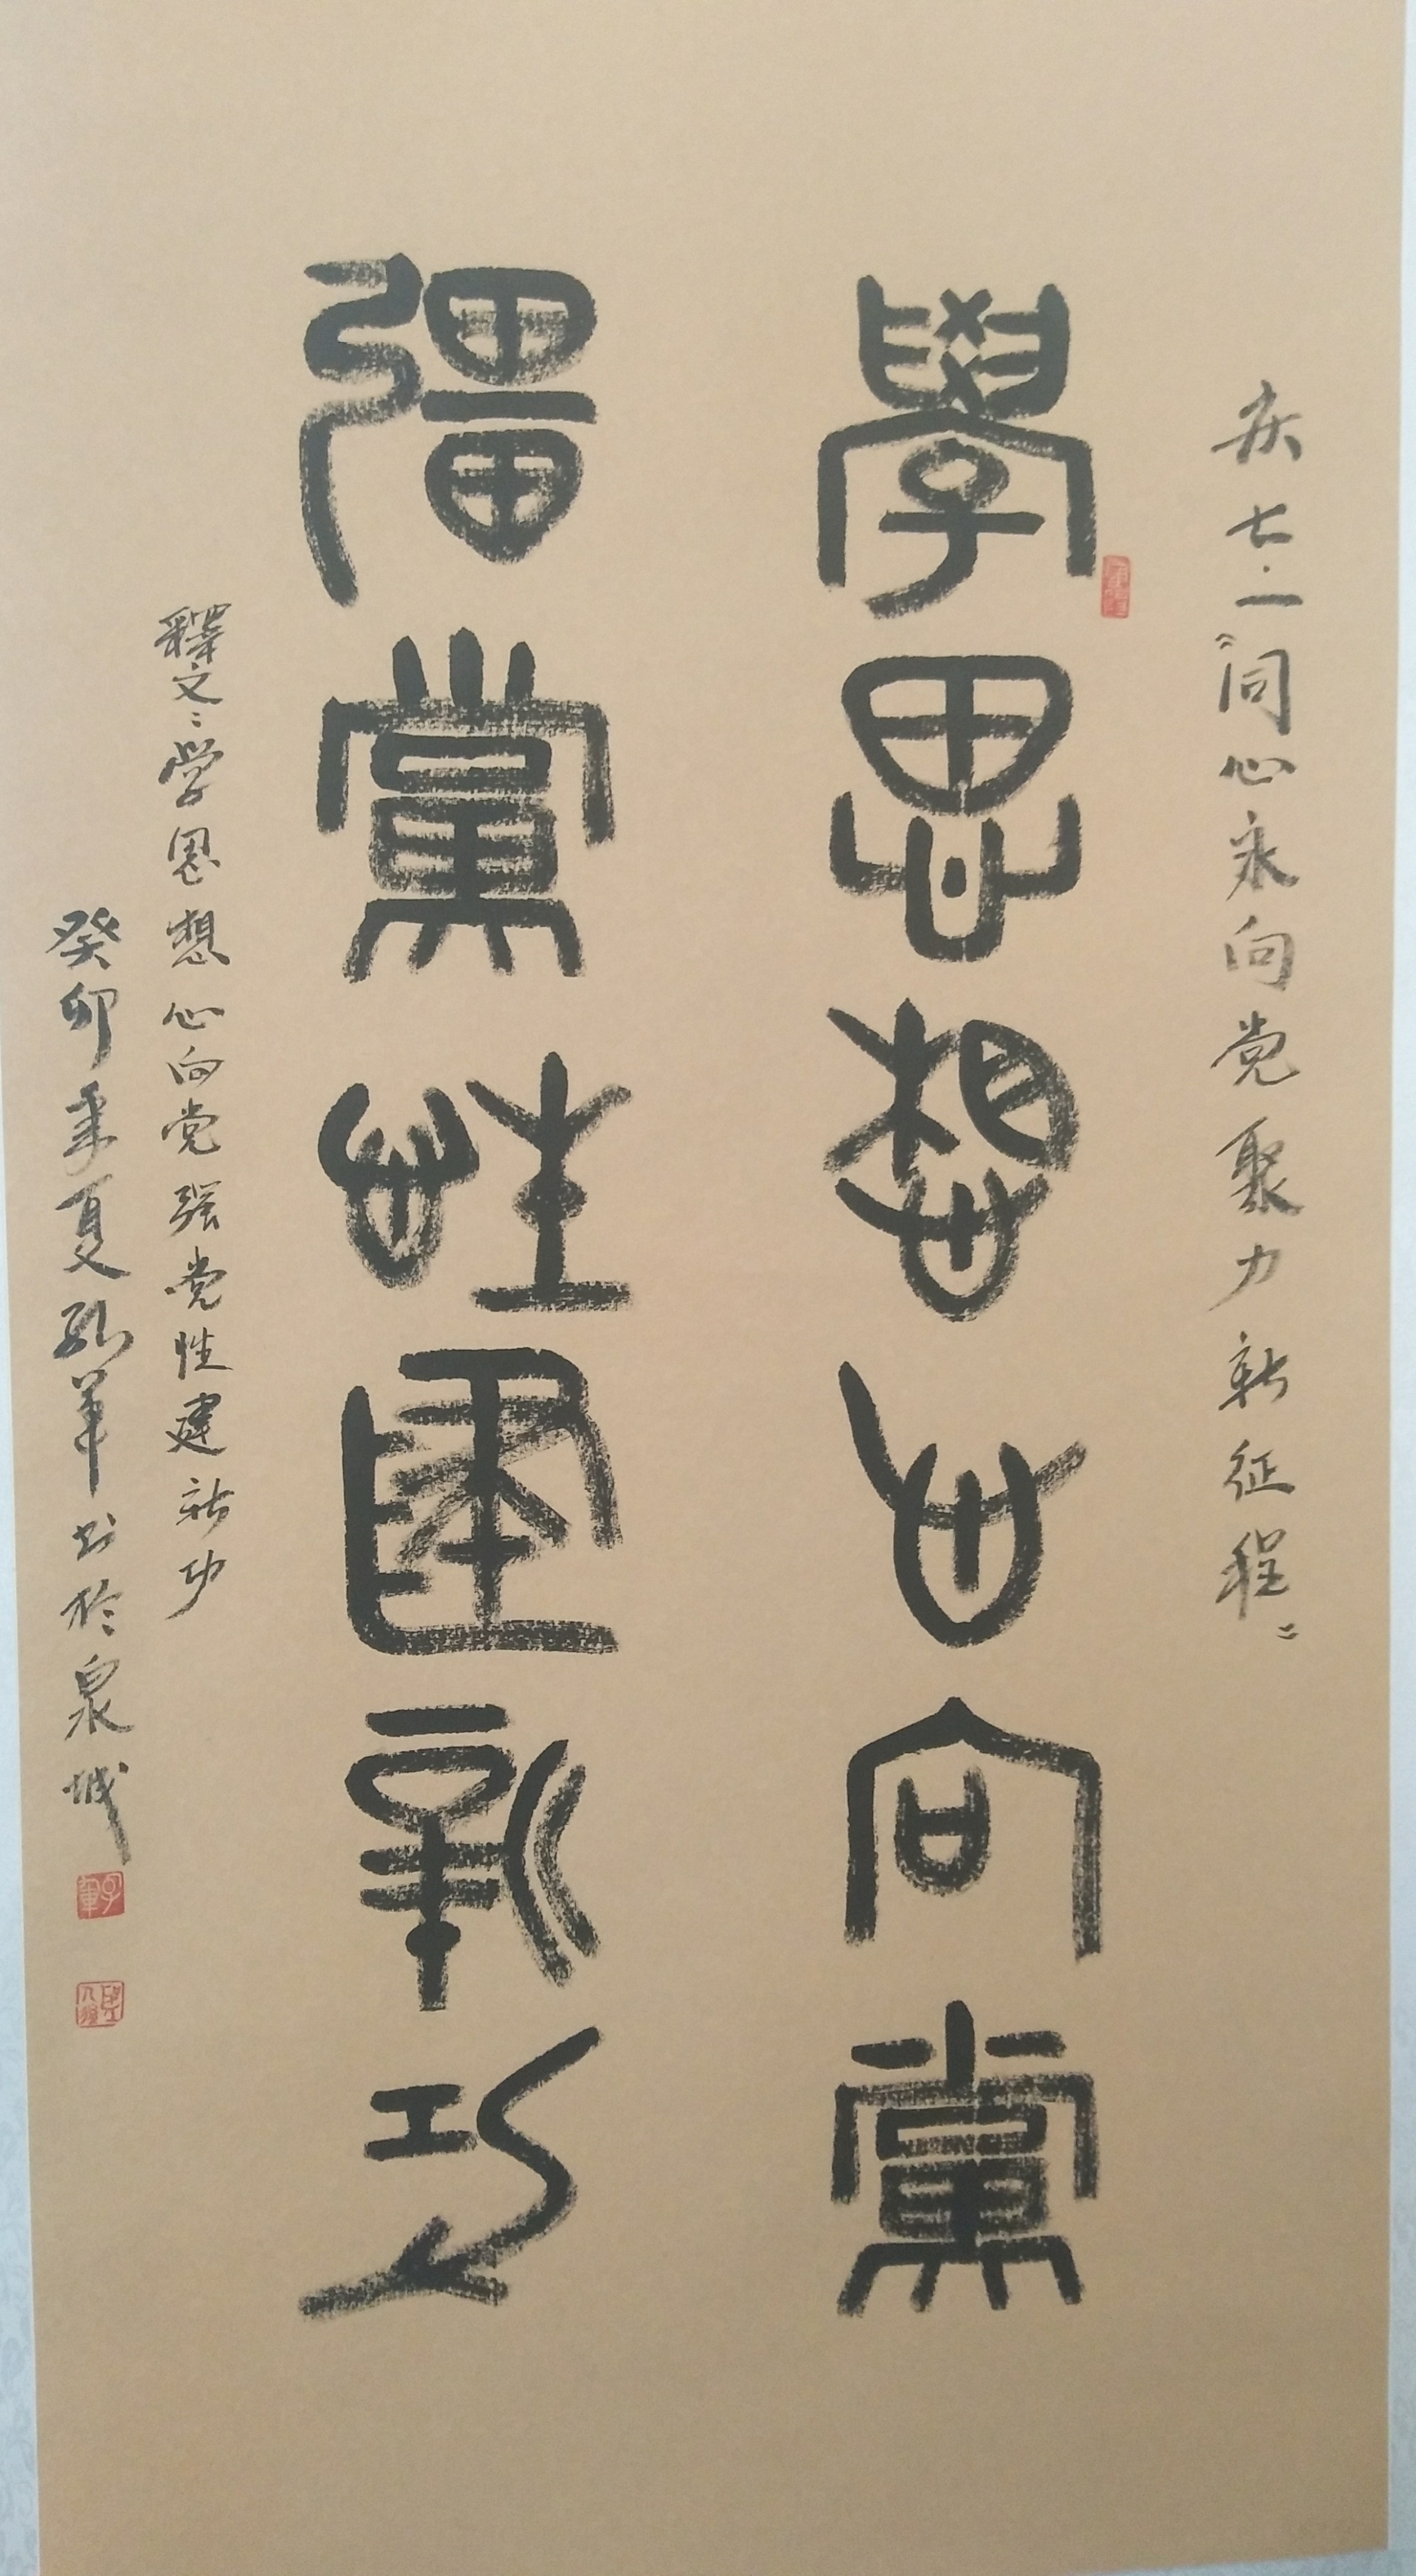 庆七·一“同心永向党聚力新征程”
學思想心向黨
彊黨性建新功
釋文：学思想心向党强党性建新功
癸卯年夏孔军书於泉城